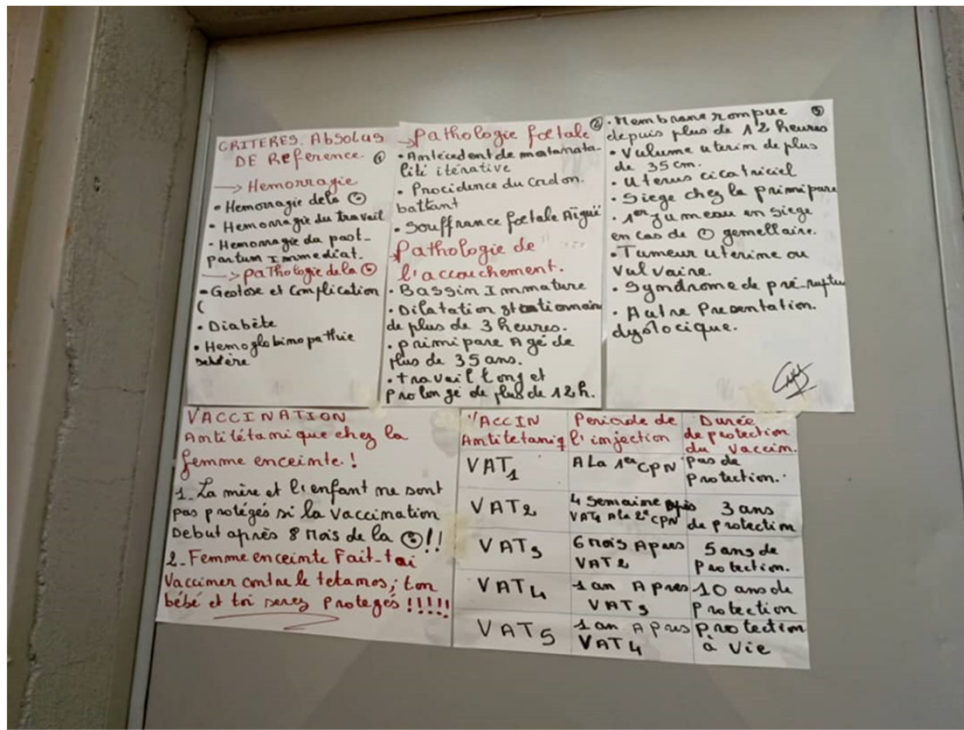 CRITERES Absolus
DE Reference. ①
→ Hemorragie
• Hemorragie de la
• Hemorragie du travail
• Hemorragie du post_
partum Immediat.
→ paThologie de la
• Gestose et Complication
(
• Diabète
• Hemoglobinopathie
sévère
→ pathologie foetale ②
• Antécedent de mortinata-
lité itérative
• Procidence du Cordon
battant
• Souffrance foetale Aïgüe
Pathologie de
l'accouchement.
• Bassin Immature
• Dilatation stationnaire
de plus de 3 heures.
• primipare Agé de
plus de 35 ans.
• travail Long et
Prolongé de plus de 12h.
• Membrane rompue ③
depuis plus de 12 heures
• Volume uterin de plus
de 35 cm.
• Uterus cicatriciel
• Siege chez la primipare
• 1er jumeau en siege
en cas de gemellaire.
• Tumeur uterine ou
Vulvaire.
• Syndrome de pré-rupture
• Autre Presentation
dystocique.
VACCINATION
Antitétanique chez la
femme enceinte.!
1_ La mère et l'enfant ne sont
pas protégés si la Vaccination
Debut après 8 Mois de la !!
2_ Femme enceinte Fait-toi
Vacciner contre le tetanos; ton
bébé et toi serez Protegés !!!!!
VACCIN Periode de Durée
Antitetaniq l'injection de protection
du Vaccin.
VAT1 A La 1er CPN pas de
protection.
VAT2 4 Semaine Après 3 ans
VAT1 A la 2e CPN de protection
VAT3 6 Mois Apres 5 ans de
VAT2 Protection.
VAT4 1 an Apres 10 ans de
VAT3 Protection
VAT5 1 an Apres Protection
VAT4 à Vie